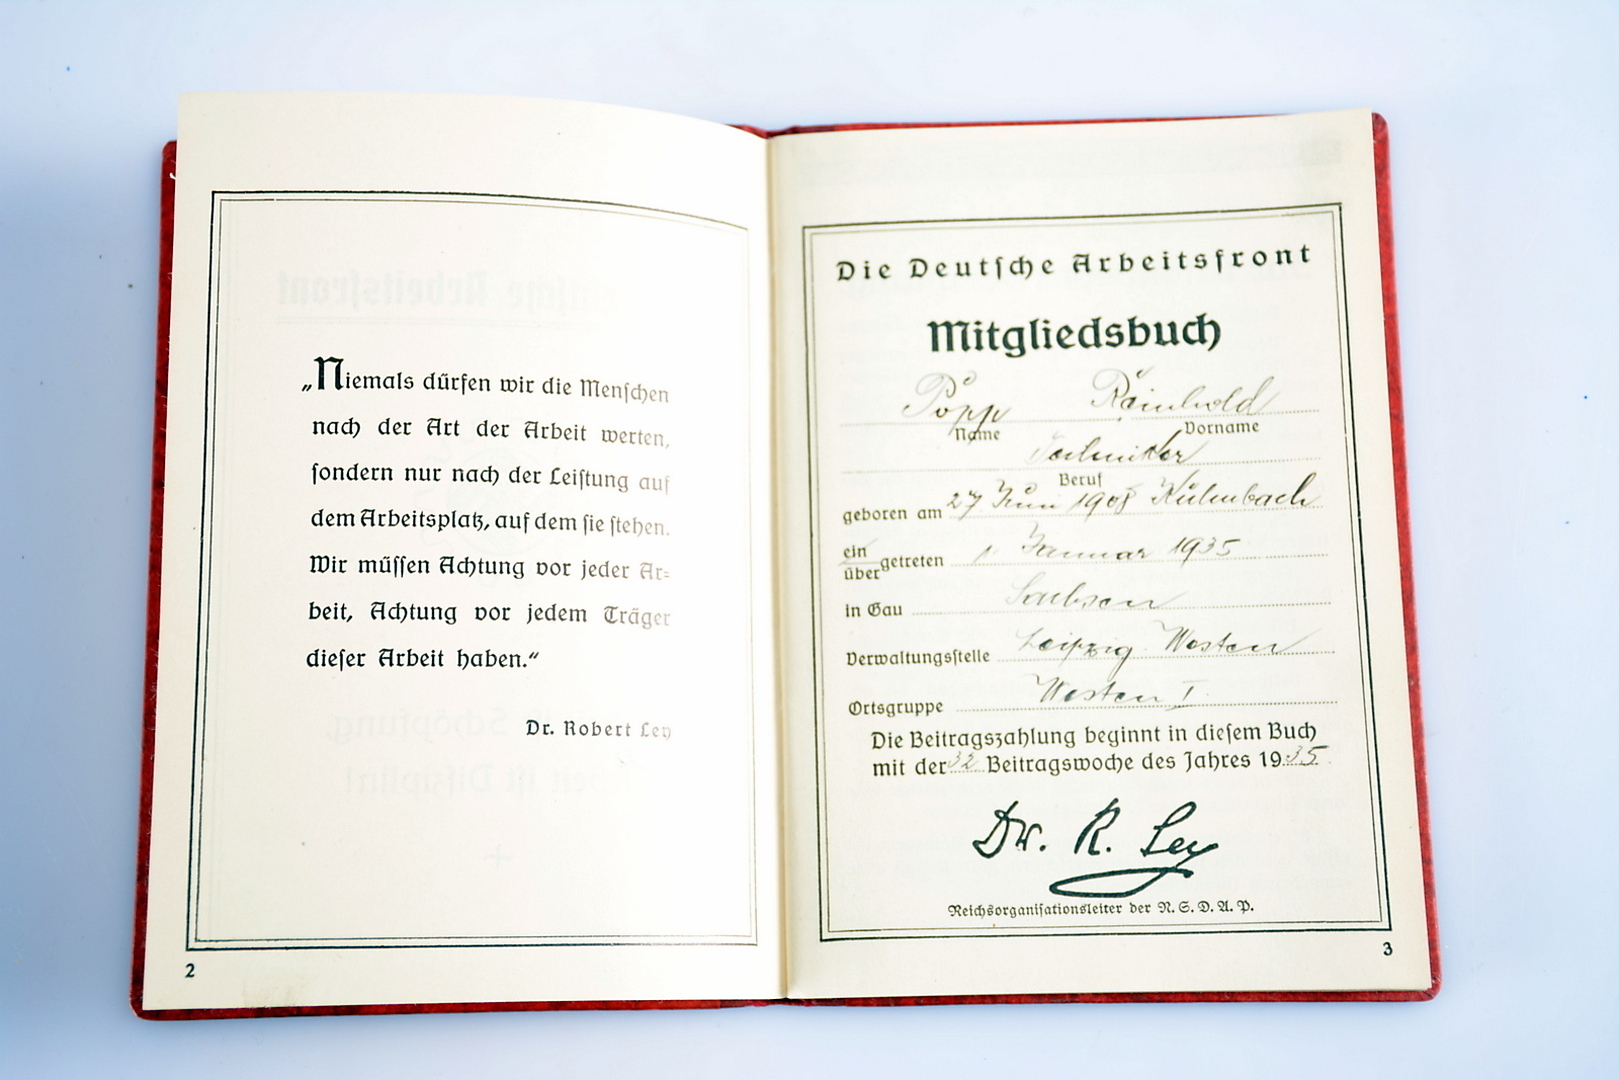 „Niemals dürfen wir die Menſchen
nach der Art der Arbeit werten,
ſondern nur nach der Leiſtung auf
dem Arbeitsplatz, auf dem ſie ſtehen.
Wir müſſen Achtung vor jeder Ar=
beit, Achtung vor jedem Träger
dieſer Arbeit haben.“
Dr. Robert Ley
2
Die Deutſche Arbeitsfront
Mitgliedsbuch
Popp Reinhold
Name Vorname
Techniker
Beruf
geboren am 27 Juni 1908 Kulmbach
ein
über getreten 1. Januar 1935
in Gau Sachsen
Verwaltungsſtelle Leipzig Westen
Ortsgruppe Westen I
Die Beitragszahlung beginnt in dieſem Buch
mit der 32 Beitragswoche des Jahres 1935
Dr. R. Ley
Reichsorganiſationsleiter der N. S. D. A. P.
3